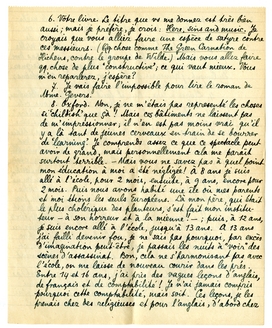 6. Votre livre. Le titre que vs me donnez est très bien
aussi; mais je préfère, je crois: Here, sins and music. Je
croyais que vous alliez faire une espèce de satyre contre
ces messieurs. (Qq chose comme The Green Carnation de
Hichens, contre le groupe de Wilde.) Mais vous allez faire
qq chose de plus "constructive", ce qui vaut mieux. Vous
m'en reparlerez, j'espère?
7. Je vais faire l'impossible pour lire le roman de
Mme. Jevers.
8. Oxford. Non, je ne m'étais pas représenté les choses
si "childish" que ça! Mais ces bâtiments ne laissent pas
de m'impressionner, il n'en est pas moins vrai qu'il
y a là tant de jeunes cerveaux en train de se bourrer
de "learning". Je comprends assez ce que ce spectacle peut
avoir de grand, mais personnellement cela me paraît
surtout terrible. Mais vous ne savez pas à quel point
mon éducation à moi a été négligée! À 8 ans je suis
allé à l'école, pour 2 mois, ensuite, à 9 ans, encore pour
2 mois. Puis nous avons habité une île où mes parents
et moi étions les seuls Européens. Là mon père, qui était
le plus colérique des planteurs, s'est fait mon institu-
teur – à son horreur et à la mienne! –; puis, à 12 ans,
je suis encore allé à l'école, jusqu'à 13 ans. À 13 ans
j'ai failli devenir fou, je ne sais pas pourquoi; par excès
d'imagination peut-être, je passais les nuits à "voir" des
scènes d'assassinat. Bon, cela ne s'harmonisant pas avec
l'école, on me laisse de nouveau courir dans les prés.
Entre 14 et 16 ans, j'ai pris de vagues leçons d'anglais,
de français et de comptabilité! Je n'ai jamais compris
pourquoi cette comptabilité, mais soit. Ces leçons, je les
prenais chez des religieuses et pour l'anglais, d'abord chez